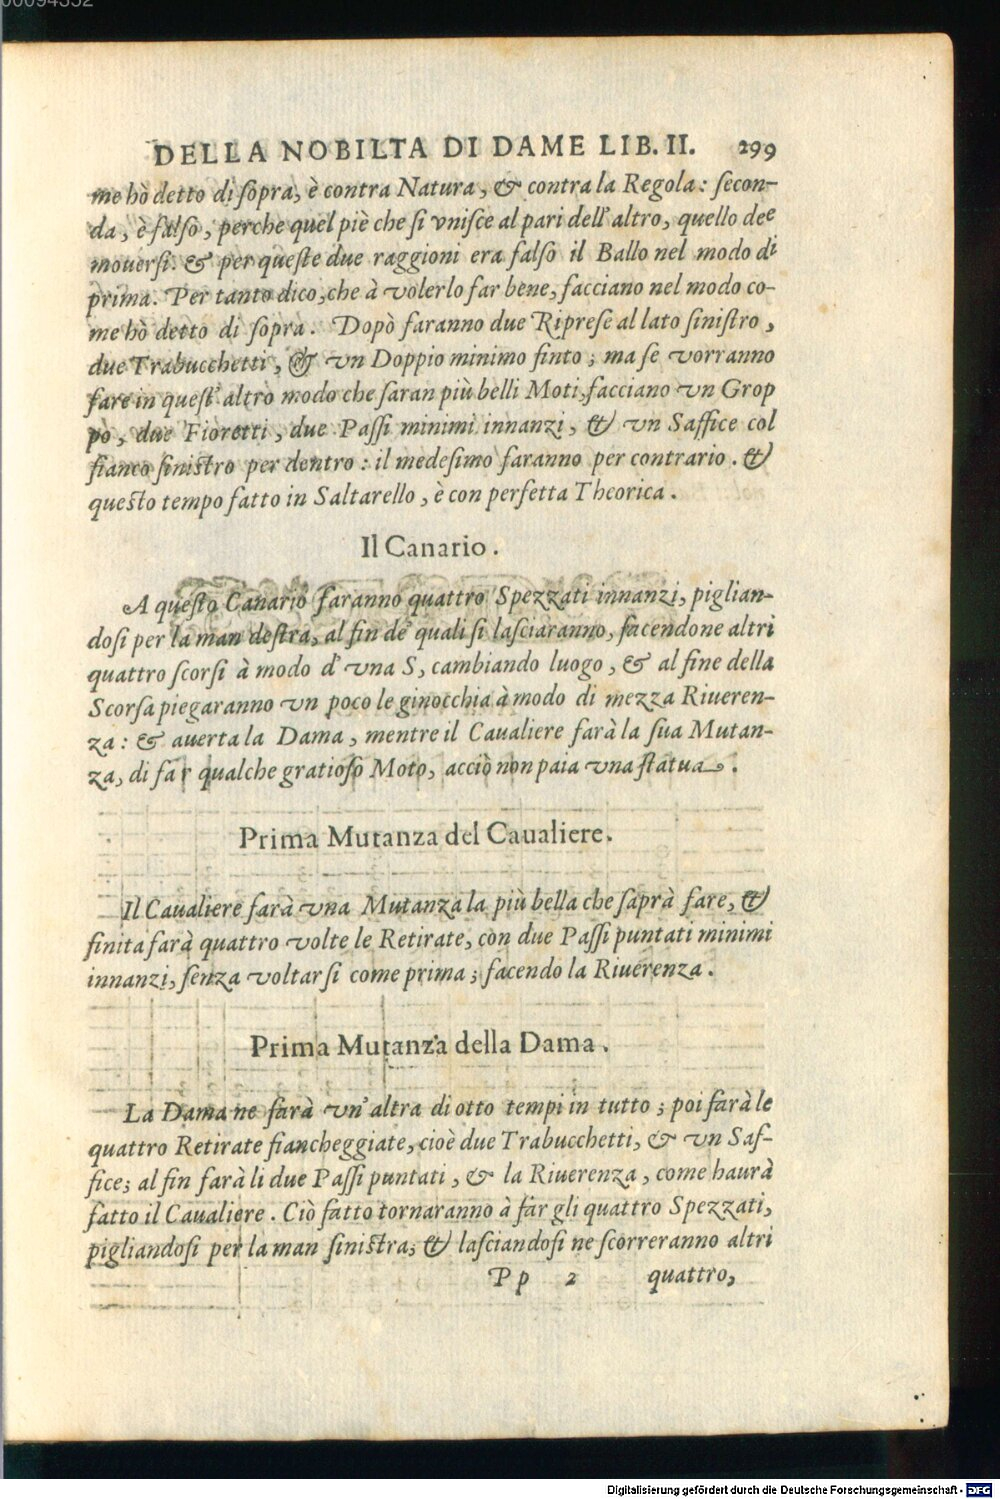 00094352
DELLA NOBILTA DI DAME LIB. II. 299
me hò detto di ſopra, è contra Natura, & contra la Regola: ſecon-
da, è falſo, perche quel piè che ſi vniſce al pari dell' altro, quello dee
mouerſi. & per queſte due raggioni era falſo il Ballo nel modo di
prima. Per tanto dico, che à volerlo far bene, facciano nel modo co-
me hò detto di ſopra. Dopò faranno due Ripreſe al lato ſiniſtro,
due Trabucchetti, & vn Doppio minimo finto; ma ſe vorranno
fare in queſt' altro modo che ſaran più belli Moti, facciano vn Grop
pò, due Fioretti, due Paſſi minimi innanzi, & vn Saffice col
fianco ſiniſtro per dentro: il medeſimo faranno per contrario. &
queſto tempo fatto in Saltarello, è con perfetta Theorica.
Il Canario.
A queſto Canario faranno quattro Spezzati innanzi, piglian-
doſi per la man deſtra, al fin de' quali ſi laſciaranno, facendone altri
quattro ſcorſi à modo d' vna S, cambiando luogo, & al fine della
Scorſa piegaranno vn poco le ginocchia à modo di mezza Riueren-
za: & auerta la Dama, mentre il Caualiere farà la ſua Mutan-
za, di far qualche gratioſo Moto, acciò non paia vna ſtatua.
Prima Mutanza del Caualiere.
Il Caualiere farà vna Mutanza la più bella che ſaprà fare, &
finita farà quattro volte le Retirate, con due Paſſi puntati minimi
innanzi, ſenza voltarſi come prima; facendo la Riuerenza.
Prima Mutanza della Dama.
La Dama ne farà vn' altra di otto tempi in tutto; poi farà le
quattro Retirate fiancheggiate, cioè due Trabucchetti, & vn Saf-
fice; al fin farà li due Paſſi puntati, & la Riuerenza, come haurà
fatto il Caualiere. Ciò fatto tornaranno à far gli quattro Spezzati,
pigliandoſi per la man ſiniſtra; & laſciandoſi ne ſcorreranno altri
Pp 2 quattro,
Digitalisierung gefördert durch die Deutsche Forschungsgemeinschaft - DFG